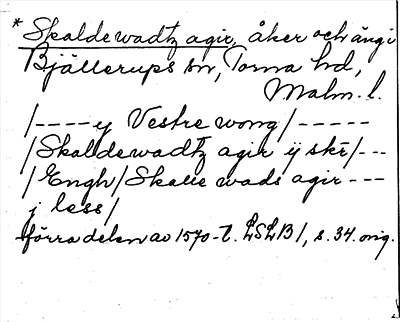 * Skaldewadtz agir, åker och äng i
Bjällerups sn, Torna hd,
Malm. l.
/---- y Vestre wong/-----
/Skaldewadtz agir ij skē/---
/Engh/Skalle wads agir ---
j less/
förra delen av 1570-t. LSLB1, s. 34. orig.